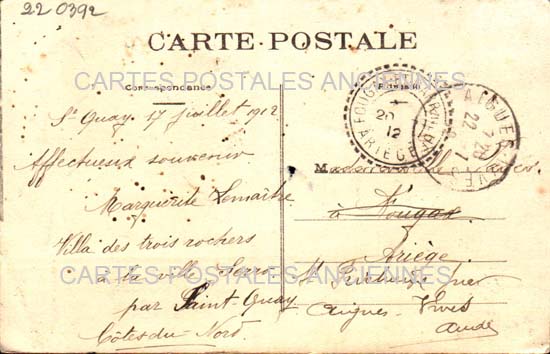 22 0392
CARTE POSTALE
CARTES POSTALES ANCIENNES
Correspondance
St Quay 17 juillet 1912
Affectueux souvenir
Marguerite Lemaitre
Villa des trois rochers
à la ville
par Saint Quay
Côtes du Nord.
FOUG
20
12
ARIÈGE
AIGUES VIVES
22 7
M
à Fougax
Ariège
St
Aigues Vives
Aude
CARTES POSTALES ANCIENNES